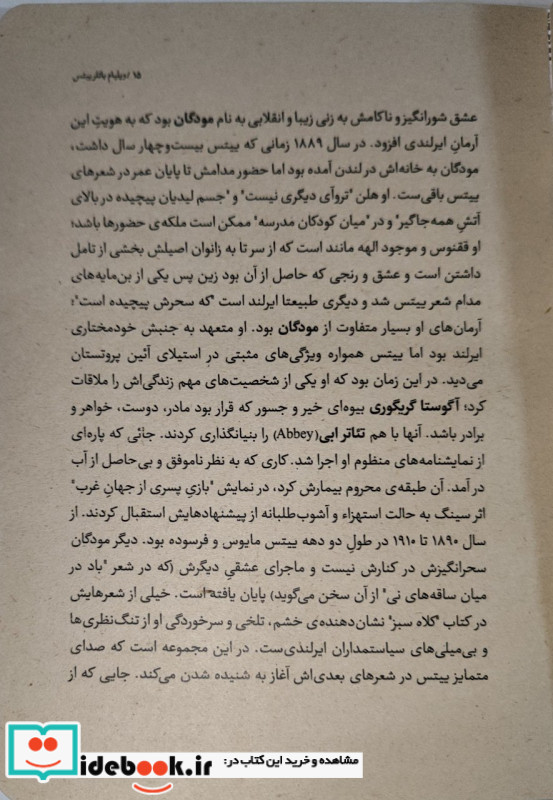 ۱۵ / ویلیام باتلر ییتس
عشق شورانگیز و ناکامش به زنی زیبا و انقلابی به نام مودگان بود که به هویتِ این
آرمانِ ایرلندی افزود. در سال ۱۸۸۹ زمانی که ییتس بیست‌وچهار سال داشت،
مودگان به خانه‌اش در لندن آمده بود اما حضور مدامش تا پایان عمر در شعرهای
ییتس باقی‌ست. او هلن "تروآی دیگری نیست" و "جسم لیدیان پیچیده در بالای
آتشِ همه‌جاگیر" و در "میان کودکان مدرسه" ممکن است ملکه‌ی حضورها باشد؛
او ققنوس و موجود الهه مانند است که از سر تا به زانوان اصیلش بخشی از تامل
داشتن است و عشق و رنجی که حاصل از آن بود زین پس یکی از بن‌مایه‌های
مدام شعر ییتس شد و دیگری طبیعتا ایرلند است "که سحرش پیچیده است"؛
آرمان‌های او بسیار متفاوت از مودگان بود. او متعهد به جنبش خودمختاری
ایرلند بود اما ییتس همواره ویژگی‌های مثبتی در استیلای آئین پروتستان
می‌دید. در این زمان بود که او یکی از شخصیت‌های مهم زندگی‌اش را ملاقات
کرد؛ آگوستا گریگوری بیوه‌ای خیر و جسور که قرار بود مادر، دوست، خواهر و
برادر باشد. آنها با هم تئاتر ابی(Abbey) را بنیانگذاری کردند. جائی که پاره‌ای
از نمایشنامه‌های منظوم او اجرا شد. کاری که به نظر ناموفق و بی‌حاصل از آب
در آمد. آن طبقه‌ی محروم بیمارش کرد، در نمایش "بازیِ پسری از جهانِ غرب"
اثر سینگ به حالت استهزاء و آشوب‌طلبانه از پیشنهادهایش استقبال کردند. از
سال ۱۸۹۰ تا ۱۹۱۰ در طولِ دو دهه ییتس مایوس و فرسوده بود. دیگر مودگان
سحرانگیزش در کنارش نیست و ماجرای عشقیِ دیگرش (که در شعر "باد در
میان ساقه‌های نی" از آن سخن می‌گوید) پایان یافته است. خیلی از شعرهایش
در کتاب "کلاه سبز" نشان‌دهنده‌ی خشم، تلخی و سرخوردگی او از تنگ‌نظری‌ها
و بی‌میلی‌های سیاستمداران ایرلندی‌ست. در این مجموعه است که صدای
متمایز ییتس در شعرهای بعدی‌اش آغاز به شنیده شدن می‌کند. جایی که از
مشاهده و خرید این کتاب در:
idebook.ir